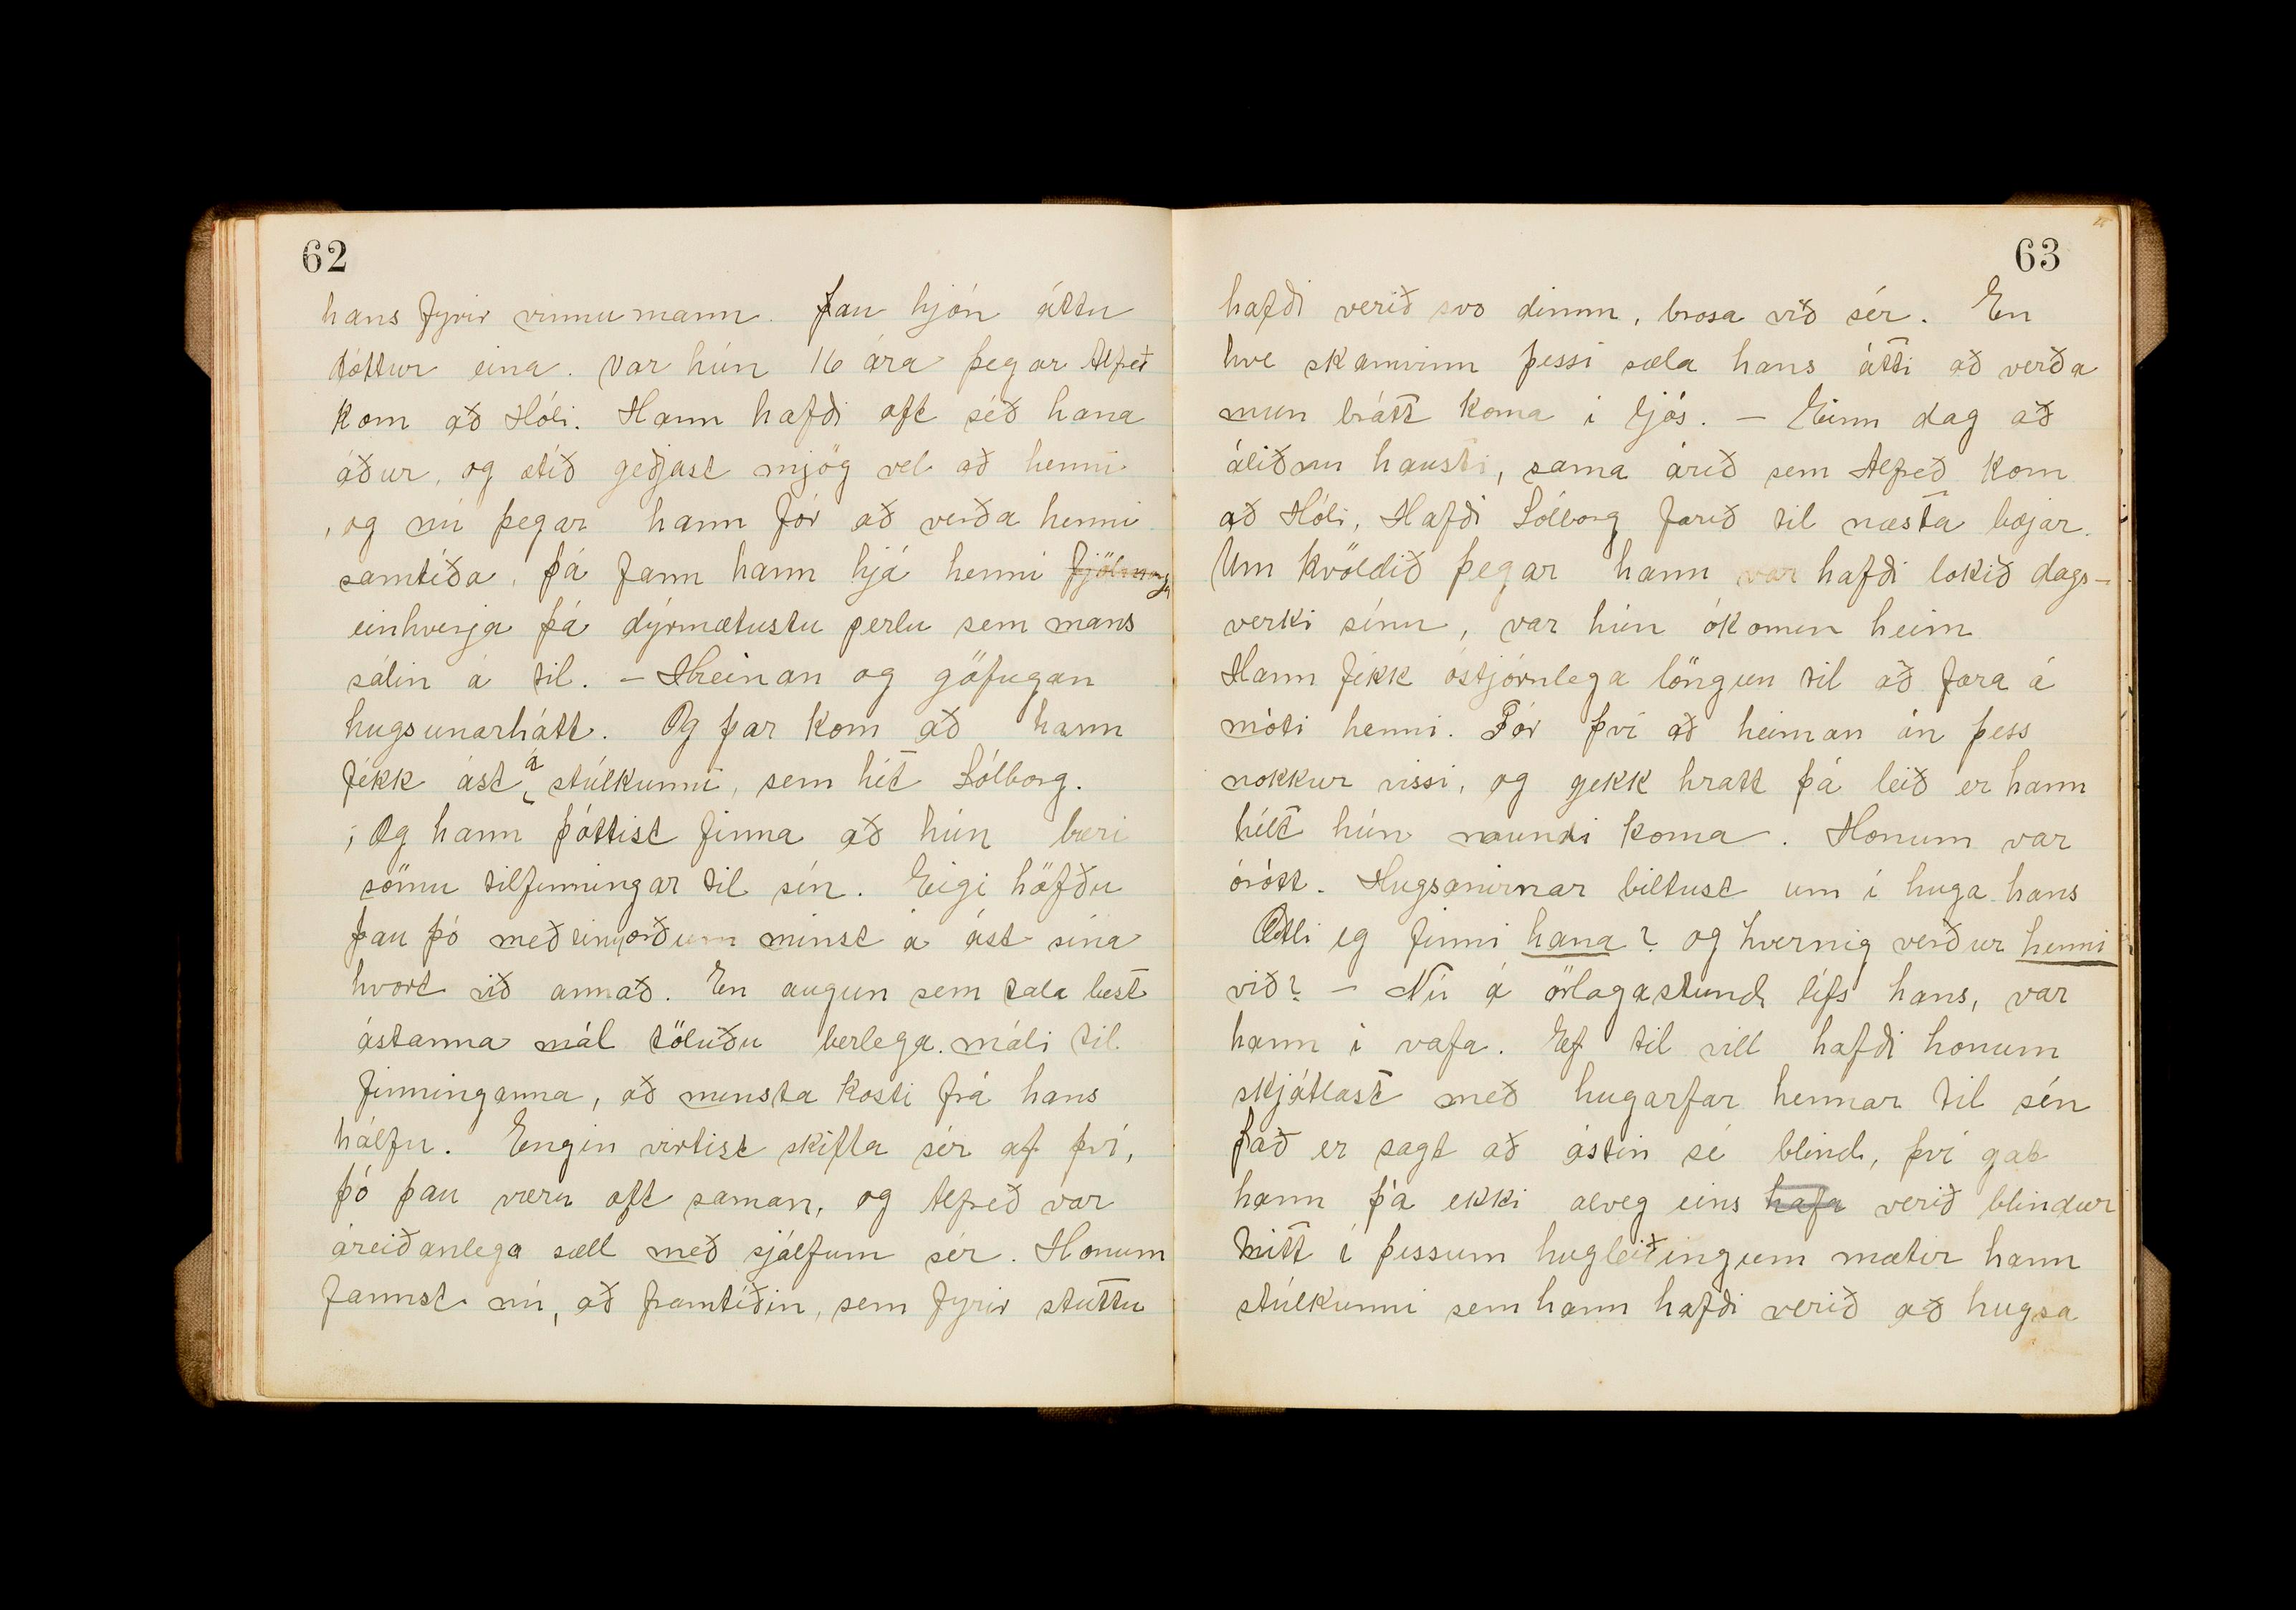 62
hans fyrir vinnumann. Þau hjón áttu
dóttur eina. Var hún 16 ára þegar Alfreð
kom að Hóli. Hann hafði oft séð hana
áður, og ætíð geðjast mjög vel að henni
, og nú þegar hann fór að verða henni
samtíða, þá fann hann hjá henni
einhverja þá dýrmætustu perlu sem mans
sálin á til. – Hreinan og göfugan
hugsunarhátt. Og þar kom að hann
fékk ást á stúlkunni, sem hét Sólborg.
; Og hann þóttist finna að hún bæri
sömu tilfinningar til sín. Eigi höfðu
þau þó með einu orðum minst á ást sína
hvort við annað. En augun sem tala best
ástanna mál töluðu berlega máli til
finninganna, að minsta kosti frá hans
hálfu. Engin virtist skifta sér af því,
þó þau væru oft saman, og Alfreð var
áreiðanlega sæll með sjálfum sér. Honum
fannst nú, að framtíðin, sem fyrir stuttu
63
hafði verið svo dimm, brosa við sér. En
hve skamvinn þessi sæla hans átti að verða
mun brátt koma í ljós. – Einn dag að
áliðnu hausti, sama árið sem Alfreð kom
að Hóli, Hafði Sólborg farið til næsta bæjar.
Um kvöldið þegar hann var hafði lokið dags-
verki sínu, var hún ókomin heim
Hann fékk óstjórnlega löngun til að fara á
móti henni. Fór því að heiman án þess
nokkur vissi, og gekk hratt þá leið er hann
hélt hún mundi koma. Honum var
órótt. Hugsanirnar biltust um í huga hans
Ætli eg finni hana? og hvernig verður henni
við? – Nú á örlagastund lífs hans, var
hann í vafa. Ef til vill hafði honum
skjátlast með hugarfar hennar til sín
Það er sagt að ástin sé blind, því gat
hann þá ekki alveg eins hafa verið blindur
Mitt í þessum hugleiðingum mætir hann
stúlkunni sem hann hafði verið að hugsa